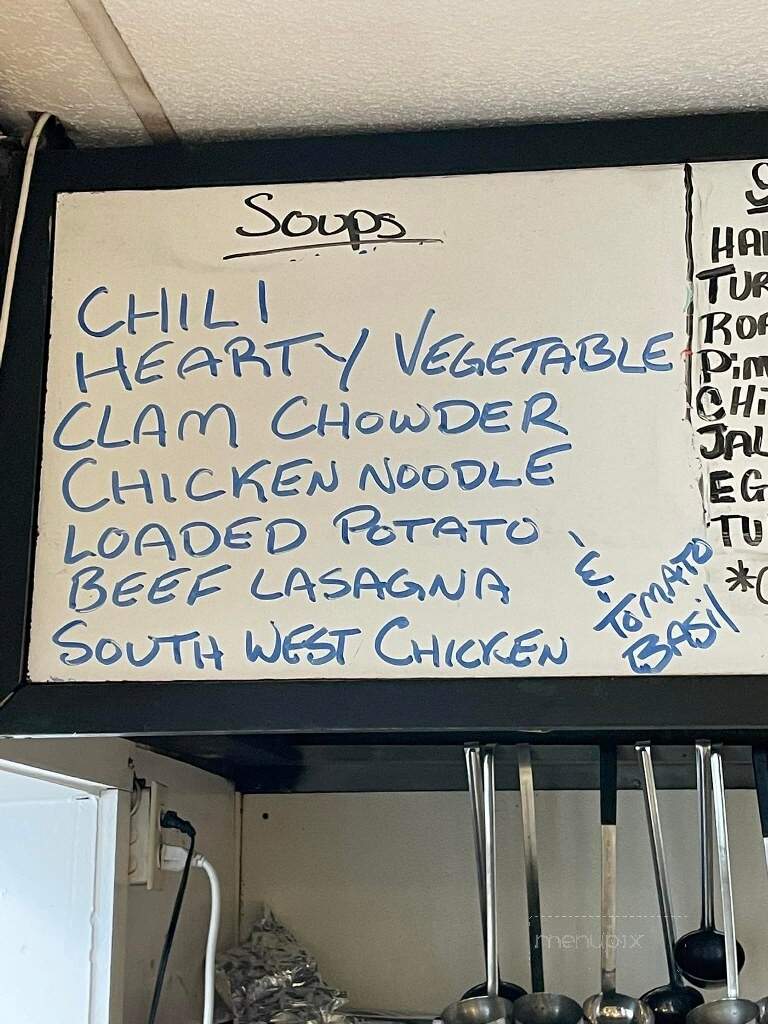 Soups
CHILI
HEARTY VEGETABLE
CLAM CHOWDER
CHICKEN NOODLE
LOADED POTATO
BEEF LASAGNA
SOUTH WEST CHICKEN
&. TOMATO
BASIL
HA
TUR
ROA
PiM
CHi
JAL
EG
TU
*
menupix